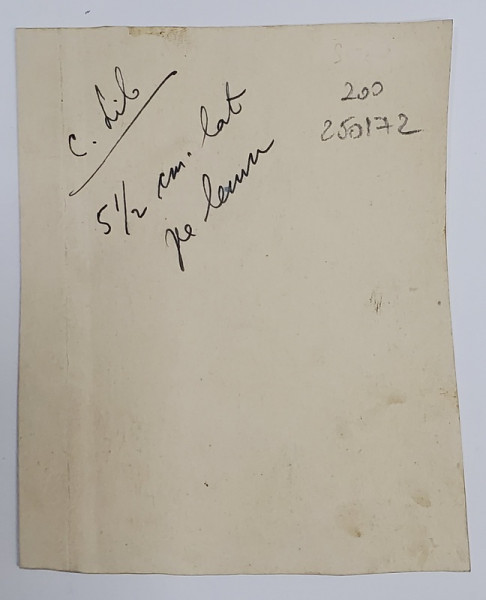 c. Lib
5 1/2 cm. lat
pe lemn
200
250172